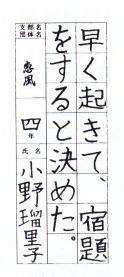 早く起きて、宿題
をすると決めた。
支部名
団体名
恵風
四年
氏名
小野瑠里子